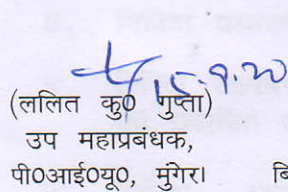 15.9.20
(ललित कु० गुप्ता)
उप महाप्रबंधक,
पी०आई०यू०, मुंगेर। बि